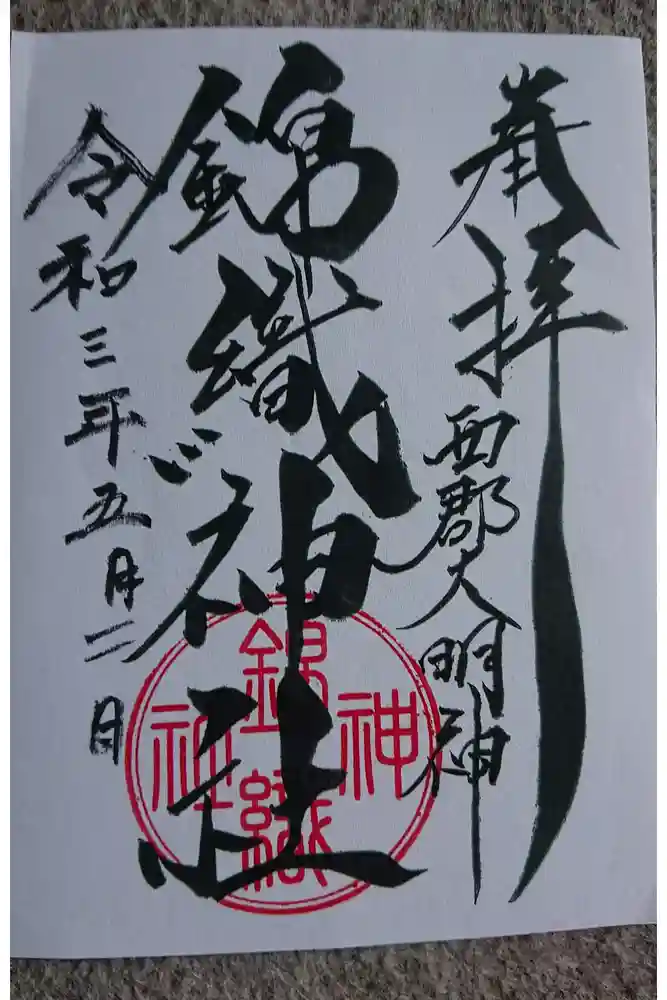 奉拝
西郡大明神
錦織神社
令和三年五月二日
錦織神社